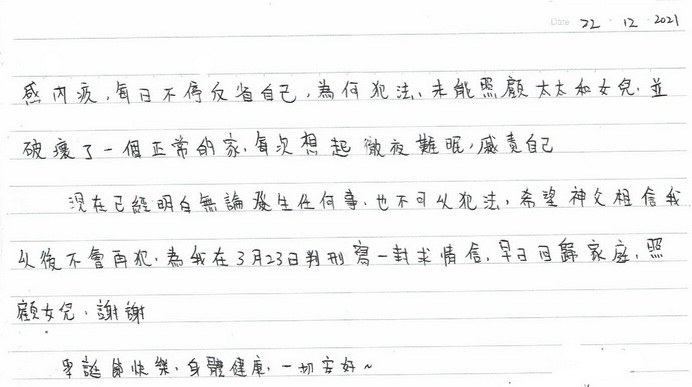 Date 22 · 12 · 2021
感內疚,每日不停反省自己,為何犯法,未能照顧太太和女兒,並
破壞了一個正常的家,每次想起徹夜難眠,感責自己
現在已經明白無論發生任何事,也不可以犯法,希望神父相信我
以後不會再犯,為我在3月23日判刑寫一封求情信,早日回歸家庭,照
顧女兒,謝謝
聖誕節快樂,身體健康,一切安好~